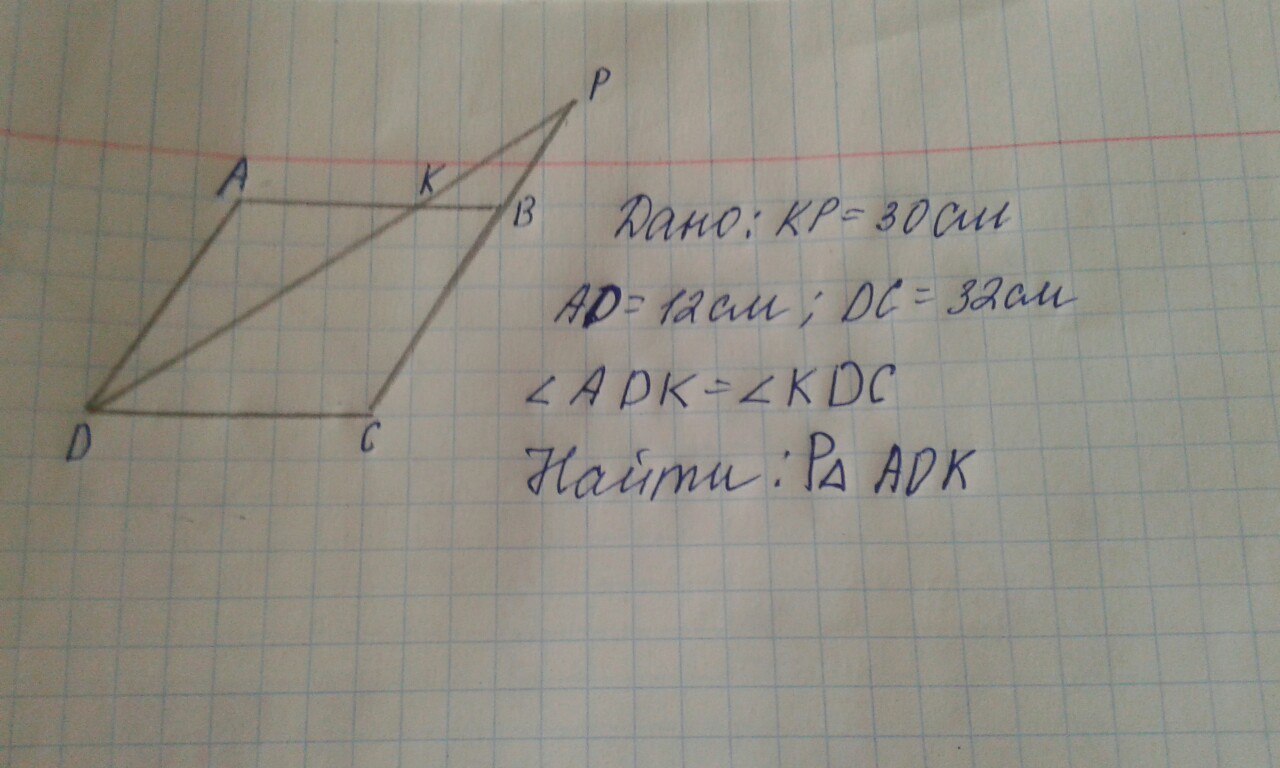 P
A
K
B
D
C
Дано: KP = 30 см
AD = 12 см ; DC = 32 см
∠ADK = ∠KDC
Найти : P△ ADK